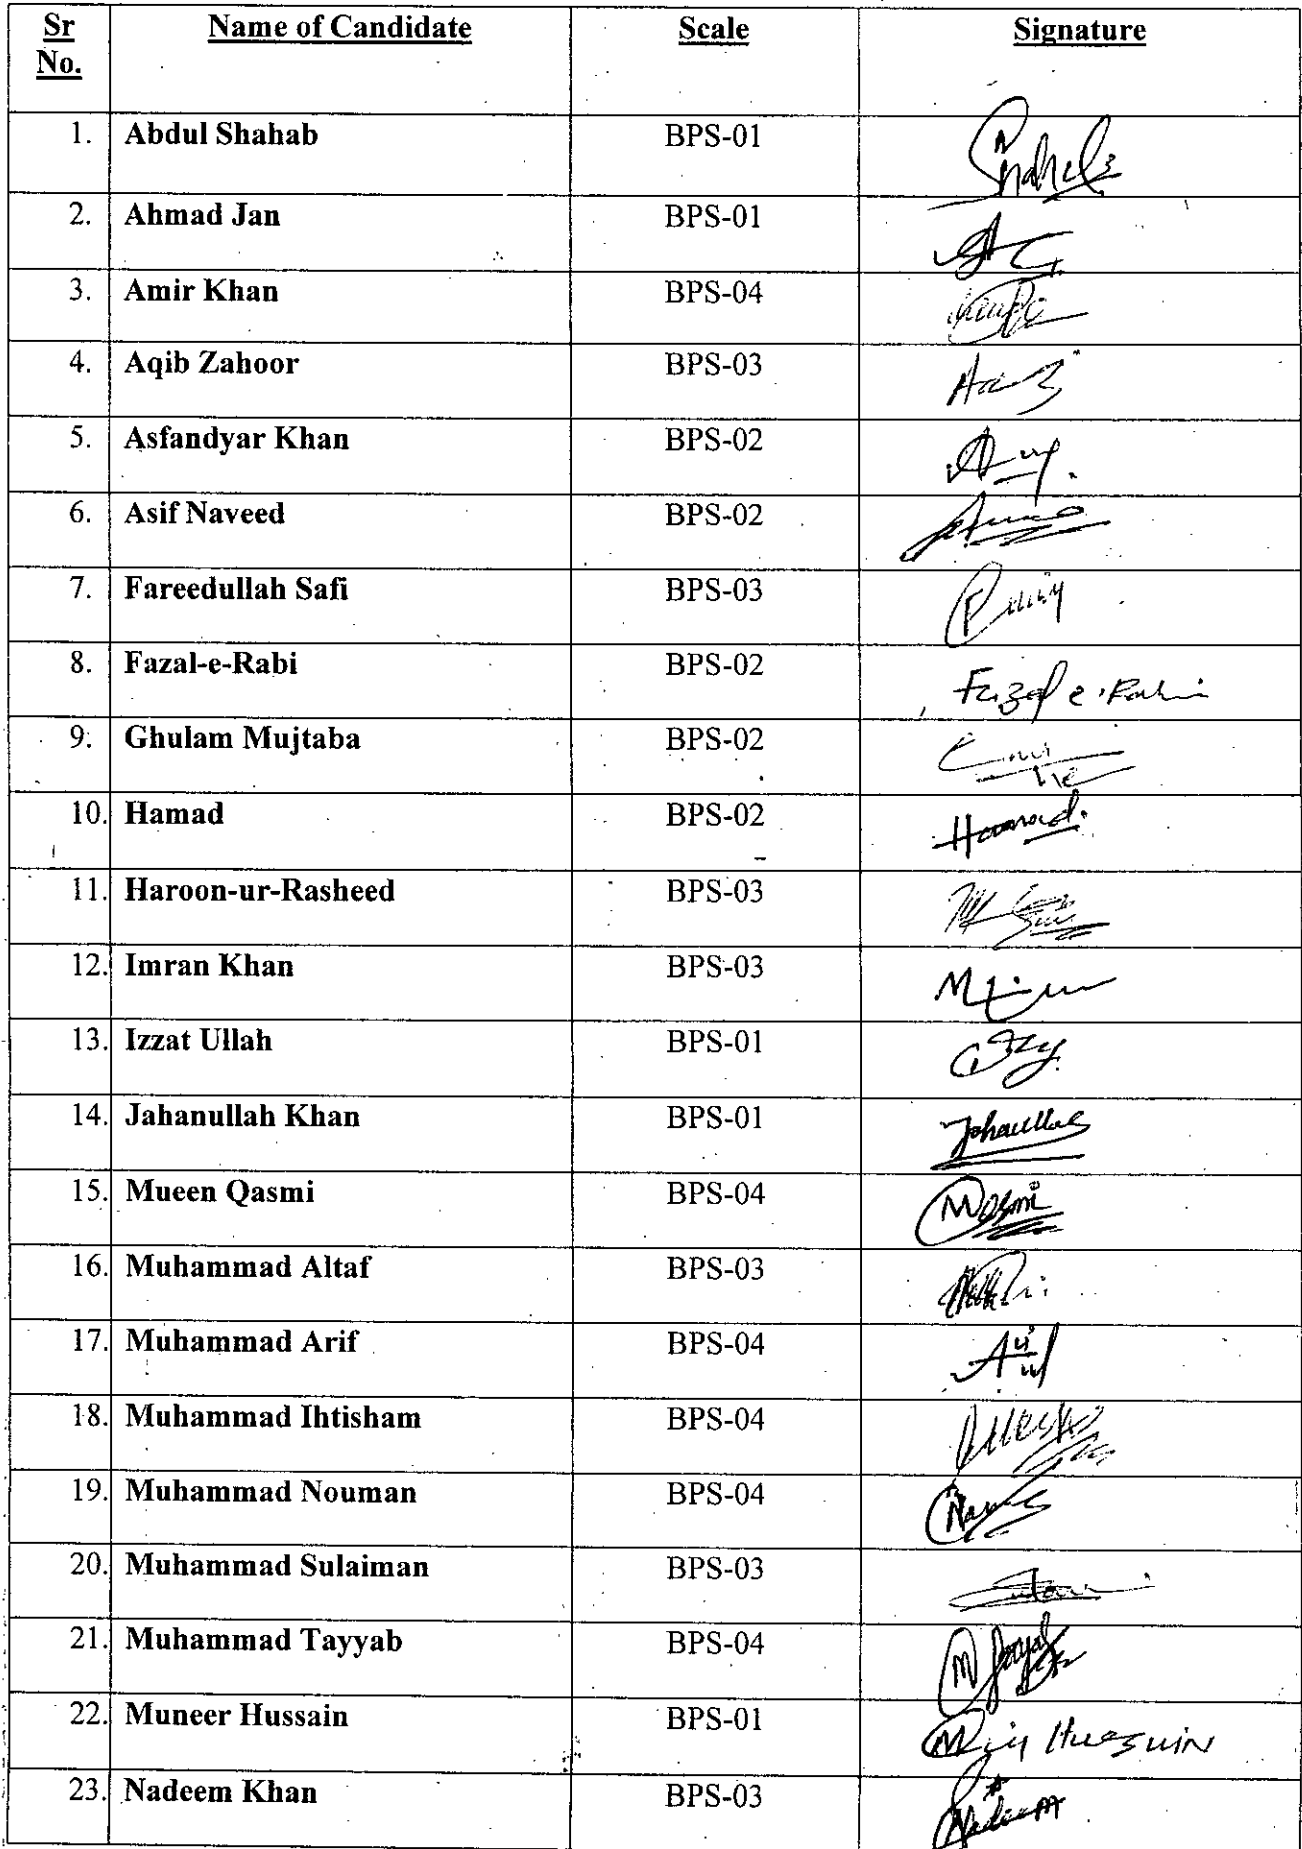 Sr No. Name of Candidate Scale Signature
1. Abdul Shahab BPS-01 Shahab
2. Ahmad Jan BPS-01
3. Amir Khan BPS-04
4. Aqib Zahoor BPS-03
5. Asfandyar Khan BPS-02
6. Asif Naveed BPS-02
7. Fareedullah Safi BPS-03
8. Fazal-e-Rabi BPS-02 Fazal e Rabi
9. Ghulam Mujtaba BPS-02
10. Hamad BPS-02 Hammad.
11. Haroon-ur-Rasheed BPS-03
12. Imran Khan BPS-03
13. Izzat Ullah BPS-01
14. Jahanullah Khan BPS-01
15. Mueen Qasmi BPS-04
16. Muhammad Altaf BPS-03
17. Muhammad Arif BPS-04
18. Muhammad Ihtisham BPS-04
19. Muhammad Nouman BPS-04
20. Muhammad Sulaiman BPS-03
21. Muhammad Tayyab BPS-04
22. Muneer Hussain BPS-01 Hussain
23. Nadeem Khan BPS-03 Nadeem